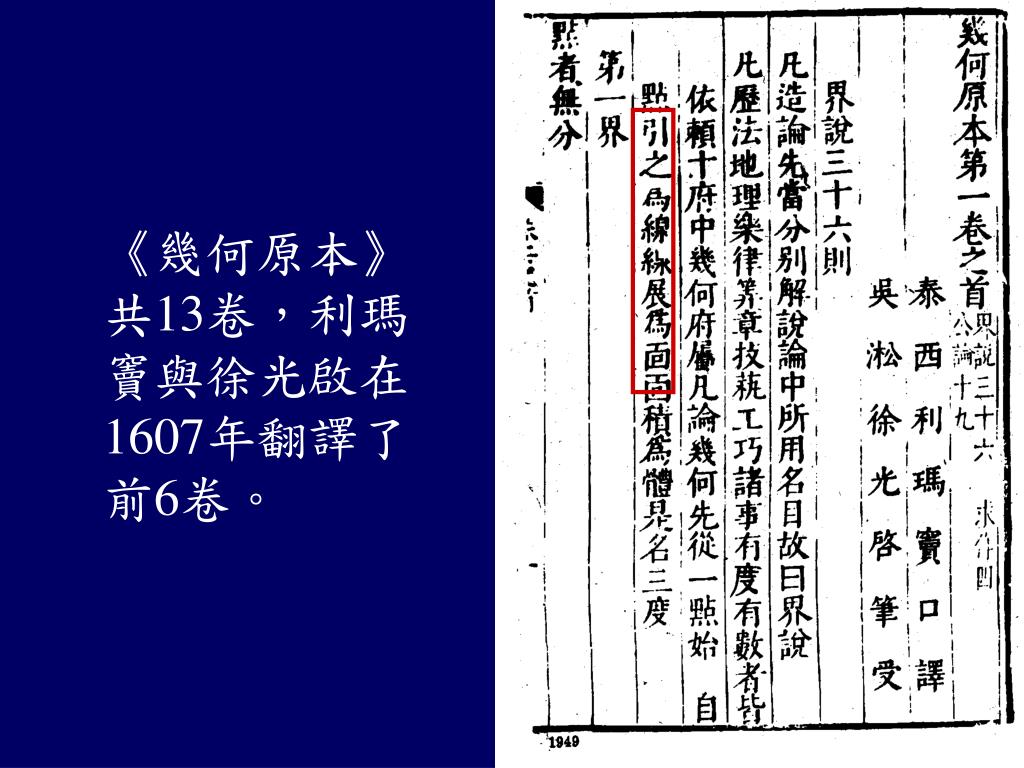 《幾何原本》
共13卷，利瑪
竇與徐光啟在
1607年翻譯了
前6卷。
幾何原本第一卷之首 界說三十六
公論十九 求作四
泰西利瑪竇口譯
吳淞徐光啓筆受
界說三十六則
凡造論先當分别解說論中所用名目故曰界說
凡歷法地理樂律筭章技藝工巧諸事有度有數者皆
依賴十府中幾何府屬凡論幾何先從一點始自
點引之為線線展為面面積為體是名三度
第一界
點者無分
1949